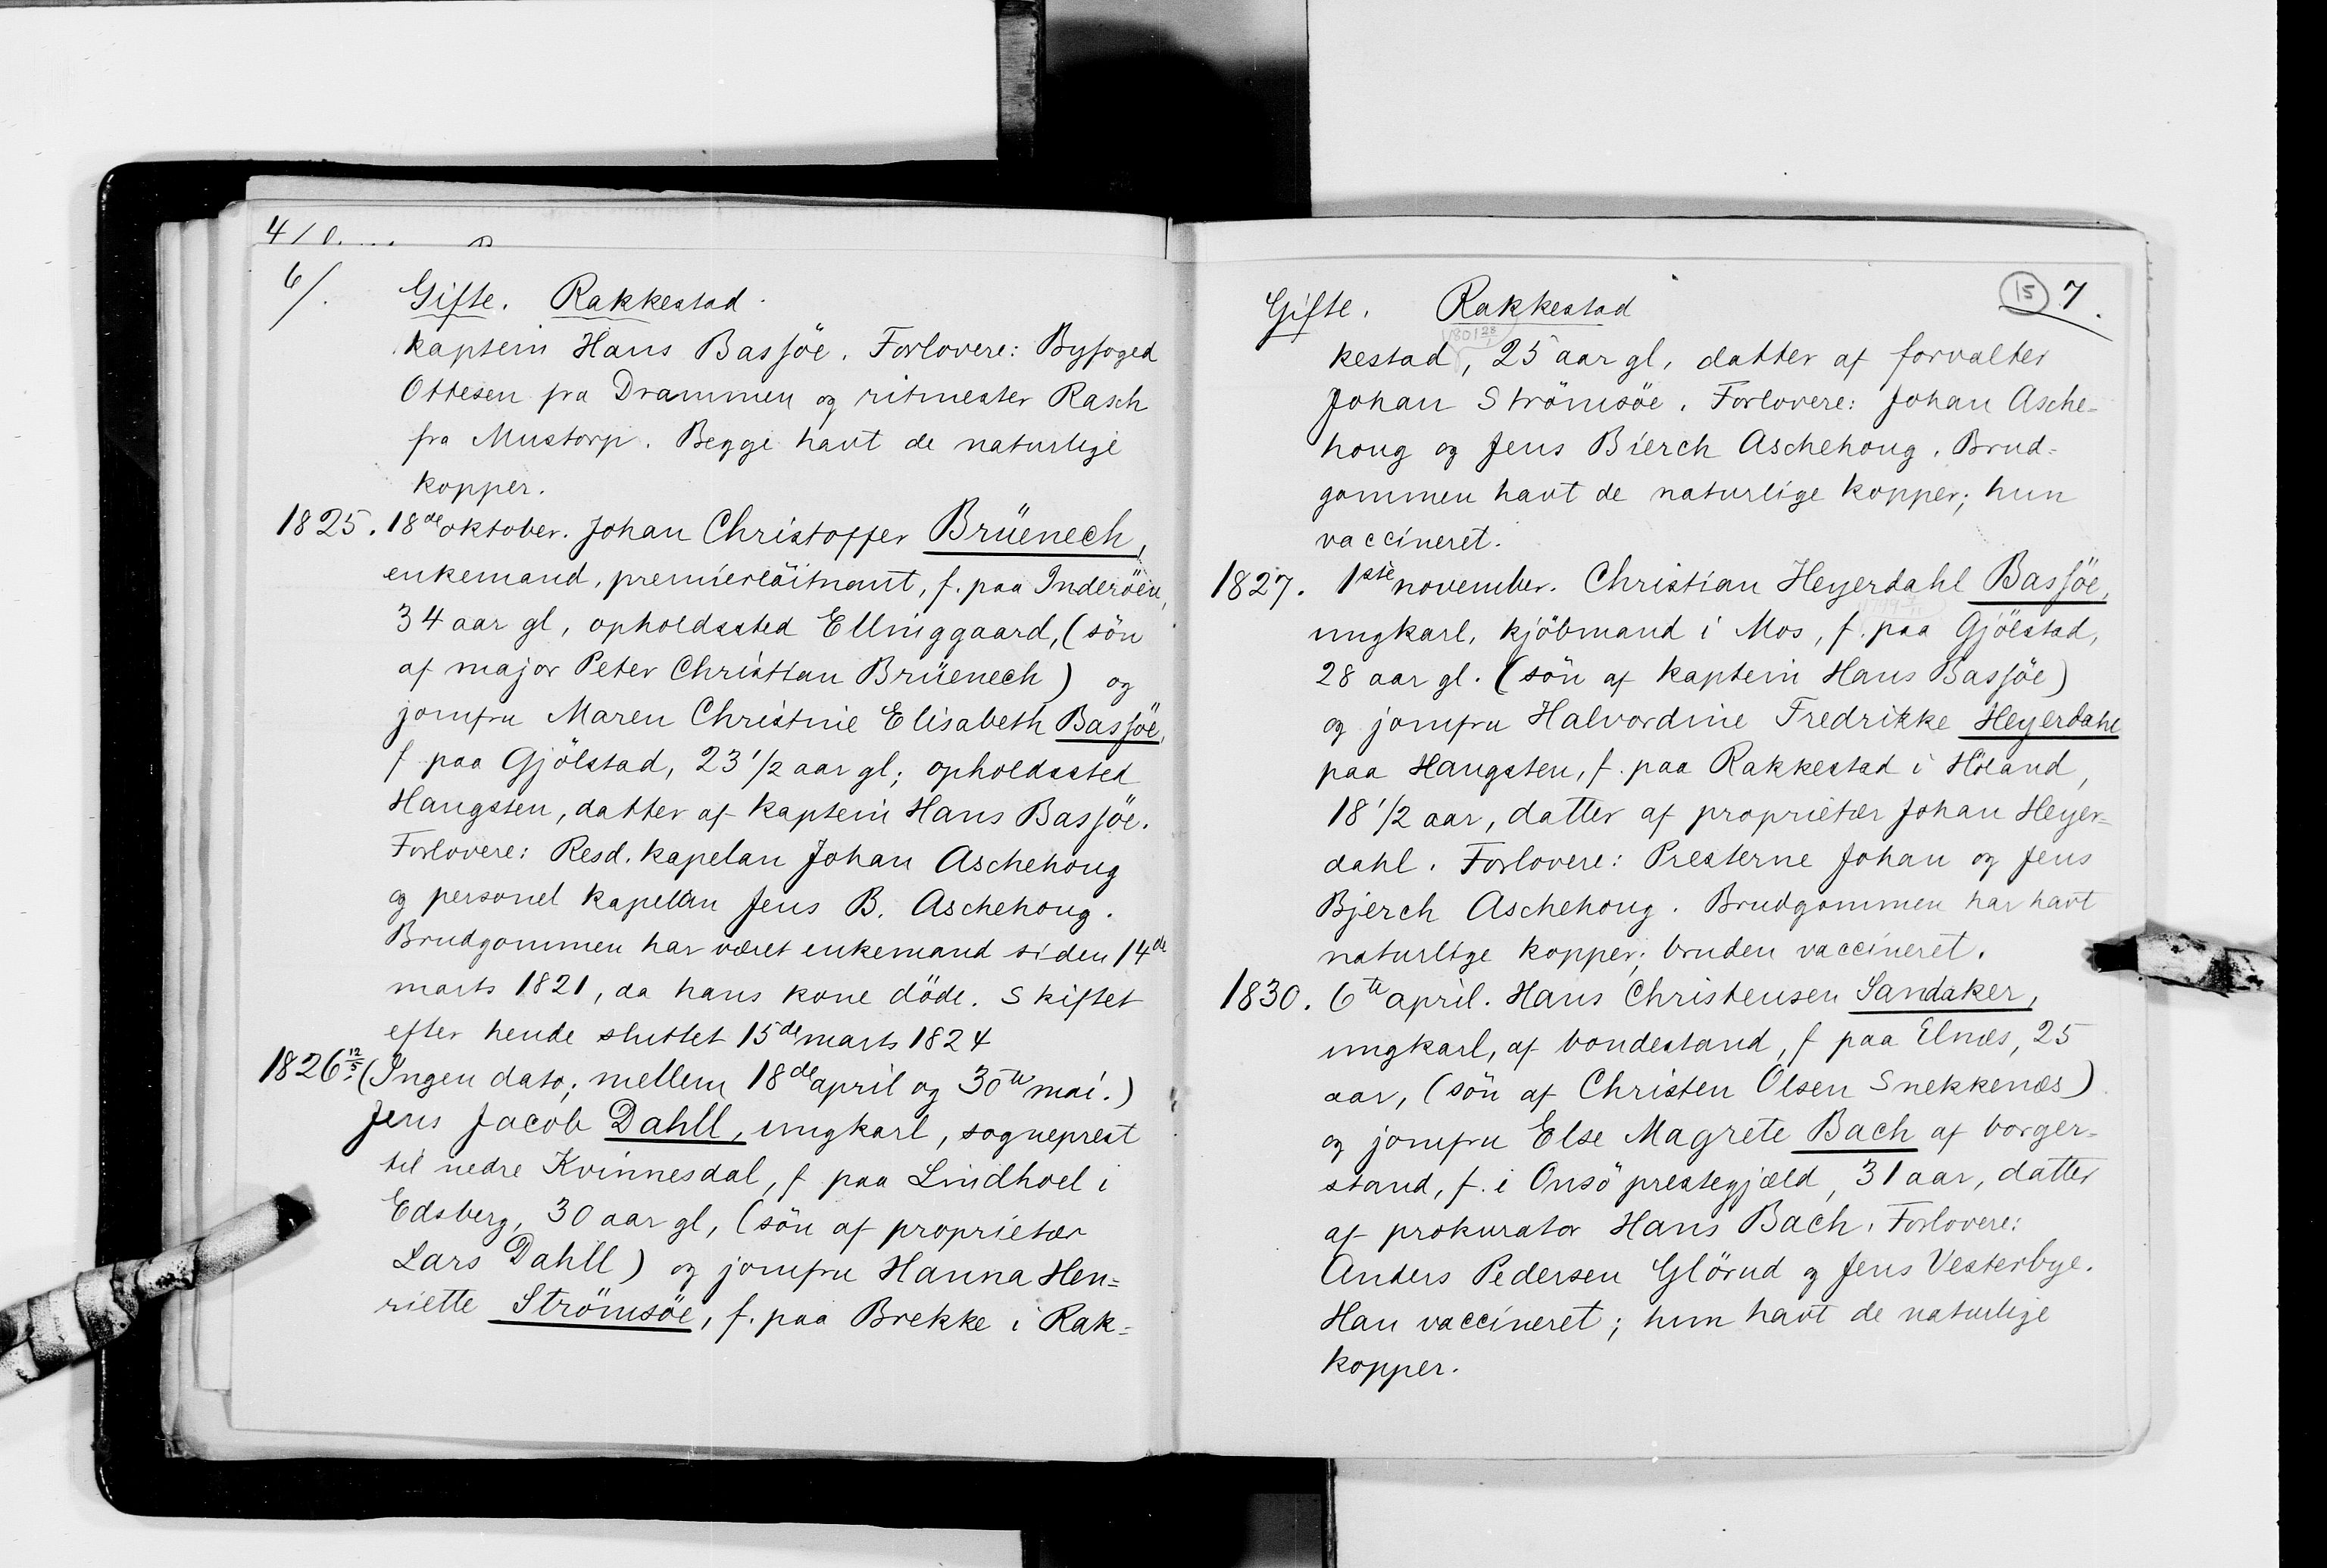 4/
6/.
Gifte. Rakkestad.
kaptein Hans Bassöe. Forlovere: Byfoged
Ottesen fra Drammen og ritmester Rasch
fra Mustorp. Begge havt de naturlige
kopper.
1825. 18de oktober. Johan Christoffer Brüenech,
enkemand, premierlöitnant, f. paa Inderöen,
34 aar gl, opholdssted Ellinggaard, (sön
af major Peter Christian Brüenech) og
jomfru Maren Christine Elisabeth Bassöe,
f paa Gjölstad, 23 1/2 aar gl; opholdssted
Haugsten, datter af kaptein Hans Bassöe.
Forlovere: Resd. kapelan Johan Aschehoug
og personel kapelan Jens B. Aschehoug.
Brudgommen har været enkemand siden 14de
marts 1821, da hans kone döde. Skiftet
efter hende sluttet 15de marts 1824
1826 12/5. (Ingen dato; mellem 18de april og 30te mai.)
Jens Jacob Dahll, ungkarl, sogneprest
til nedre Kvinnesdal, f paa Lindhoel i
Edsberg, 30 aar gl, (sön af proprietær
Lars Dahll) og jomfru Hanna Hen=
riette Strömsöe, f. paa Brekke i Rak=
15 7.
Gifte. Rakkestad
kestad, 25 aar gl, datter af forvalter
Johan Strömsöe. Forlovere: Johan Asche=
houg og Jens Bierch Aschehoug. Brud=
gommen havt de naturlige kopper; hun
vaccineret.
1827. 1ste november. Christian Heyerdahl Bassöe,
ungkarl, kjöbmand i Mos, f. paa Gjölstad,
28 aar gl. (sön af kaptein Hans Bassöe)
og jomfru Halvordine Fredrikke Heyerdahl
paa Haugsten, f. paa Rakkestad i Höland,
18 1/2 aar, datter af proprietær Johan Heyer=
dahl. Forlovere: Presterne Johan og Jens
Bjerch Aschehoug. Brudgommen har havt
naturlige kopper; bruden vaccineret.
1830. 6te april. Hans Christensen Sandaker,
ungkarl, af bondestand, f paa Elnæs, 25
aar, (sön af Christen Olsen Snekkenæs)
og jomfru Else Magrete Bach af borger=
stand, f. i Onsö prestegjæld, 31 aar, datter
af prokurator Hans Bach. Forlovere:
Anders Pedersen Glörud og Jens Vesterbye.
Han vaccineret; hun havt de naturlige
kopper.